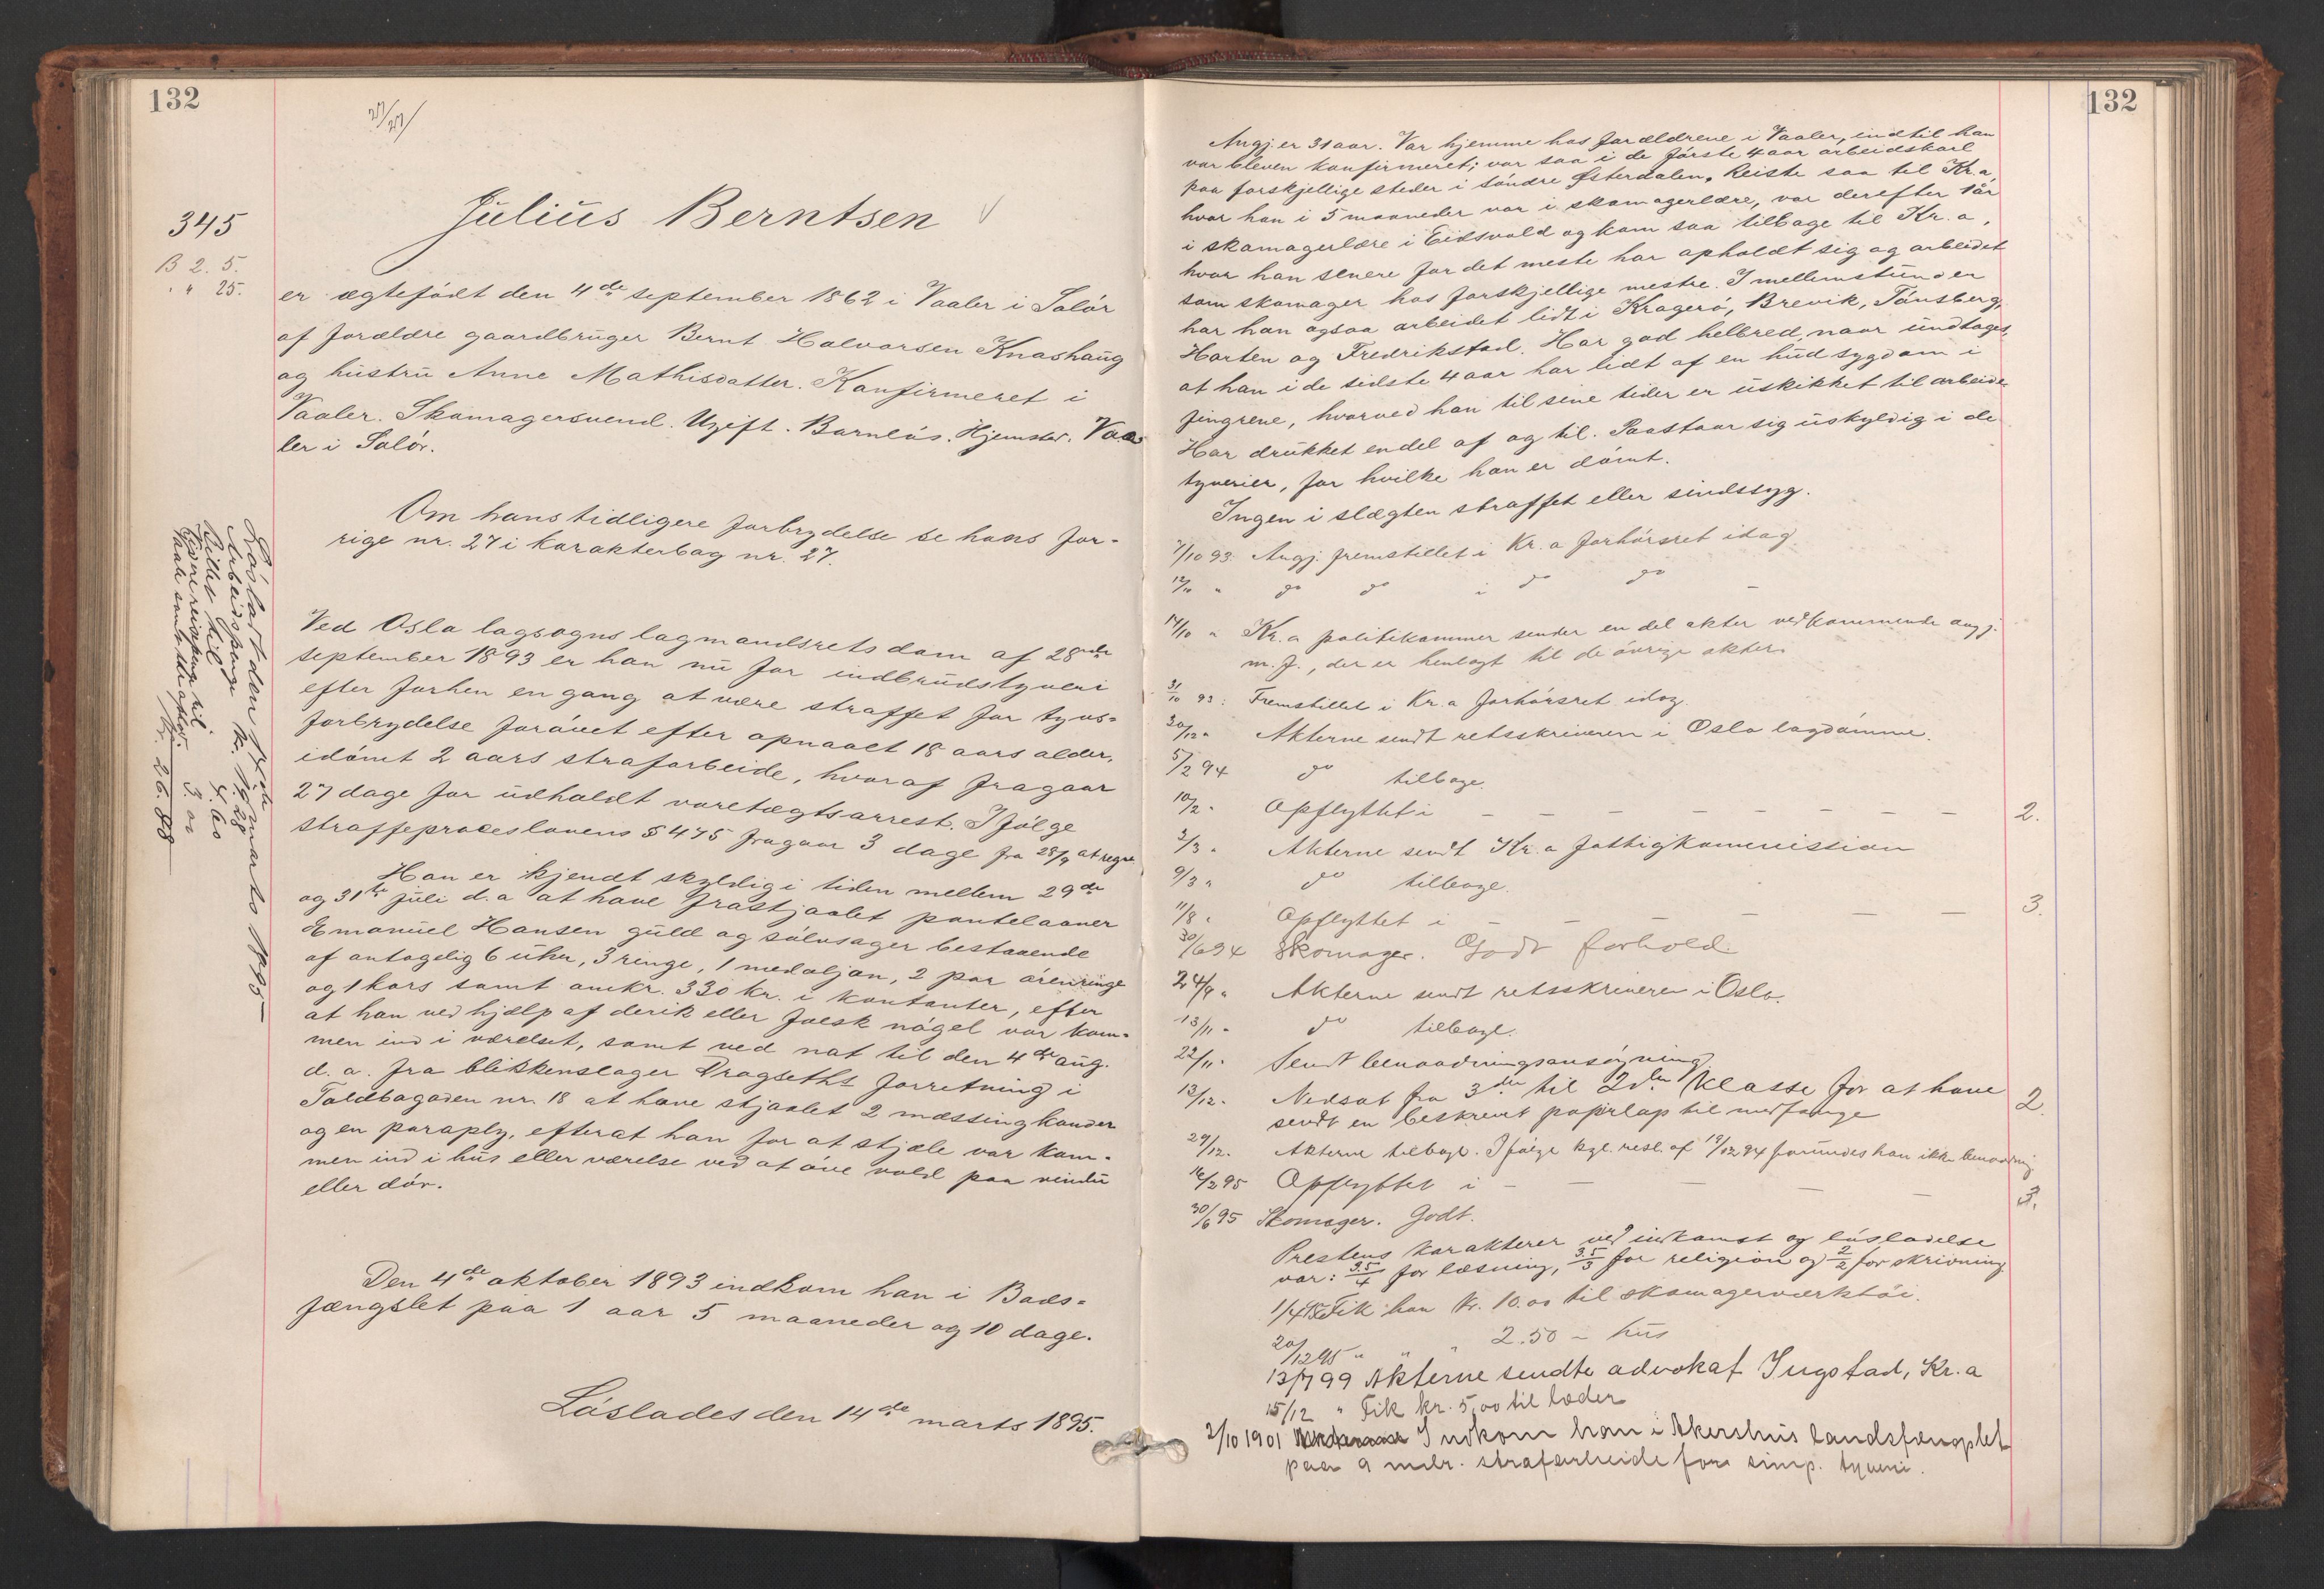 132
27/27/
345
B 2. 5.
" " 25.
Julius Berntsen
er ægtefødt den 4de september 1862 i Vaaler i Solør
af forældre gaardbruger Bernt Halvorsen Knashaug
og hustru Anne Mathisdatter. Konfirmeret i
Vaaler. Skomagersvend. Ugift. Barnløs. Hjemsted. Vaa-
ler i Solør.
Om hans tidligere forbrydelse se hans for-
rige nr. 27 i karakterbog nr. 27.
Ved Oslo lagsogns lagmandsrets dom af 28de
september 1893 er han nu for indbrudstyveri
efter forhen en gang at være straffet for tyvs-
forbrydelse forøvet efter opnaaet 18 aars alder,
idømt 2 aars strafarbeide, hvoraf fragaar
27 dage for udholdt varetægtsarrest. Ifølge
straffeproceslovens § 475 fragaar 3 dage fra 28/9 at regne
Han er kjendt skyldig i tiden mellem 29de
og 31te juli d.a at have frastjaalet pantelaaner
Emanuel Hansen guld og sølvsager bestaaende
af antagelig 6 uhre, 3 ringe, 1 medaljon, 2 par ørenringe
og 1 kors samt omkr. 330 kr. i kontanter, efter
at han ved hjælp af dirik eller falsk nøgel var kom-
men ind i værelset, samt ved nat til den 4de aug.
d.a. fra blikkenslager Dragseths forretning i
Toldbogaden nr. 18 at have stjaalet 2 messingkander
og en paraply, efterat han for at stjæle var kom-
men ind i hus eller værelse ved at øve vold paa vindu
eller dør.
Den 4de oktober 1893 indkom han i Bods-
fængslet paa 1 aar 5 maaneder og 10 dage.
Løslades den 14de marts 1895.
Løsladt den 14de marts 1895
Arbeidspenge kr. 19.28
Billet til 4.60
Videre reisepenge til 3.00
kr. 26.88
132
Angj. er 31 aar. Var hjemme hos forældrene i Vaaler, indtil han
var bleven konfirmeret; var saa i de første 4 aar arbeidskarl
paa forskjellige steder i søndre Østerdalen. Reiste saa til Kr.a,
hvor han i 5 maaneder var i skomagerlære, var derefter 1 år
i skomagerlære i Eidsvold og kom saa tilbage til Kr.a,
hvor han senere for det meste har opholdt sig og arbeidet
som skomager hos forskjellige mestre. I mellemstunder
har han ogsaa arbeidet lidt i Kragerø, Brevik, Tønsberg,
Horten og Fredrikstad. Har god helbred, naar undtages,
at han i de sidste 4 aar har lidt af en hudsygdom i
fingrene, hvorved han til sine tider er uskikket til arbeide
Har drukket endel af og til. Paastaar sig uskyldig i de
tyverier, for hvilke han er dømt.
Ingen i slægten straffet eller sindssyg.
7/10 93. Angj. fremstillet i Kr.a forhørsret idag
12/10 " do do i do do
14/10 " Kr.a politikammer sender en del akter vedkommende angj.
m. f., der er henlagt til de øvrige akter.
31/10 93: Fremstillet i Kr.a forhørsret idag.
30/12 " Akterne sendt retsskriveren i Oslo lagdømme.
5/2 94 do tilbage.
10/2 " Opflyttet i — — — — — — 2.
2/3 " Akterne sendt Kr.a fattigkommission
9/3 " do tilbage.
11/8 " Opflyttet i — — — — — — 3.
30/6 94 Skomager. Godt forhold.
24/9 " Akterne sendt retsskriveren i Oslo.
13/11 " do tilbage.
22/11 " Sendt benaadningsansøgning.
12/12 " Nedsat fra 3die til 2den klasse for at have 2.
sendt en beskrevet papirlap til medfange
29/12 " Akterne tilbage. Ifølge kgl. resl. af 19/12 94 forundes han ikke benaadning
16/2 95 Opflyttet i — — — — — 3.
30/6 95 Skomager. Godt.
Prestens karakterer ved indkomst og løsladelse
var: 3.5/4 for læsning, 3.5/3 for religion og 2/2 for skrivning
1/4 95 Fik han kr. 10.00 til skomagerværktøi.
20/12 95 " " 2.50 - hus
13/7 99 Akterne sendte advokat Ingstad, Kr.a
15/12 " Fik kr. 5,00 til læder
2/10 1901 Indkom han i Akershus landsfængslet
paa 9 mdr. strafarbeide for simp. tyveri.